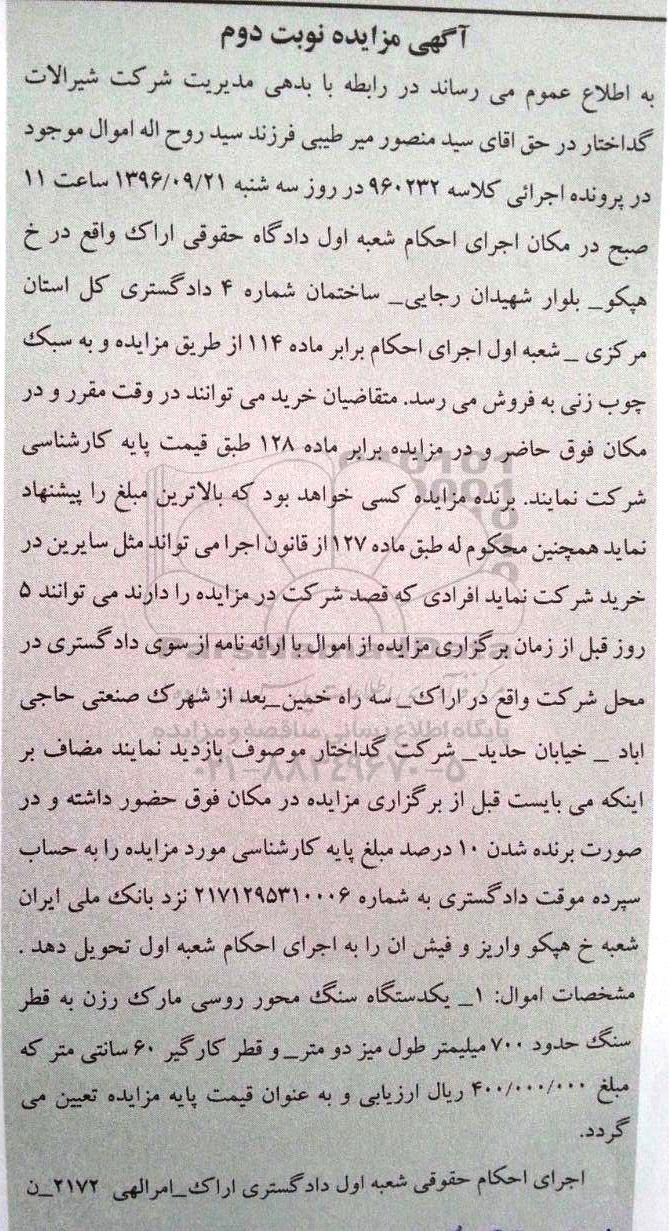 آگهی مزایده نوبت دوم
به اطلاع عموم می رساند در رابطه با بدهی مدیریت شرکت شیرالات
گداختار در حق اقای سید منصور میر طیبی فرزند سید روح اله اموال موجود
در پرونده اجرائی کلاسه ۹۶۰۲۳۲ در روز سه شنبه ۱۳۹۶/۰۹/۲۱ ساعت ۱۱
صبح در مکان اجرای احکام شعبه اول دادگاه حقوقی اراک واقع در خ
هپکو_ بلوار شهیدان رجایی_ ساختمان شماره ۴ دادگستری کل استان
مرکزی _ شعبه اول اجرای احکام برابر ماده ۱۱۴ از طریق مزایده و به سبک
چوب زنی به فروش می رسد. متقاضیان خرید می توانند در وقت مقرر و در
مکان فوق حاضر و در مزایده برابر ماده ۱۲۸ طبق قیمت پایه کارشناسی
شرکت نمایند. برنده مزایده کسی خواهد بود که بالاترین مبلغ را پیشنهاد
نماید همچنین محکوم له طبق ماده ۱۲۷ از قانون اجرا می تواند مثل سایرین در
خرید شرکت نماید افرادی که قصد شرکت در مزایده را دارند می توانند ۵
روز قبل از زمان برگزاری مزایده از اموال با ارائه نامه از سوی دادگستری در
محل شرکت واقع در اراک_ سه راه خمین_بعد از شهرک صنعتی حاجی
اباد _ خیابان حدید_ شرکت گداختار موصوف بازدید نمایند مضاف بر
اینکه می بایست قبل از برگزاری مزایده در مکان فوق حضور داشته و در
صورت برنده شدن ۱۰ درصد مبلغ پایه کارشناسی مورد مزایده را به حساب
سپرده موقت دادگستری به شماره ۲۱۷۱۲۹۵۳۱۰۰۰۶ نزد بانک ملی ایران
شعبه خ هپکو واریز و فیش ان را به اجرای احکام شعبه اول تحویل دهد .
مشخصات اموال: ۱_ یکدستگاه سنگ محور روسی مارک رزن به قطر
سنگ حدود ۷۰۰ میلیمتر طول میز دو متر_ و قطر کارگیر ۶۰ سانتی متر که
مبلغ ۴۰۰/۰۰۰/۰۰۰ ریال ارزیابی و به عنوان قیمت پایه مزایده تعیین می
گردد.
اجرای احکام حقوقی شعبه اول دادگستری اراک_امرالهی ۲۱۷۲_ن
ParsNamadData
پایگاه اطلاع رسانی مناقصه و مزایده
۰۲۱-۸۸۳۴۹۶۷۰-۵